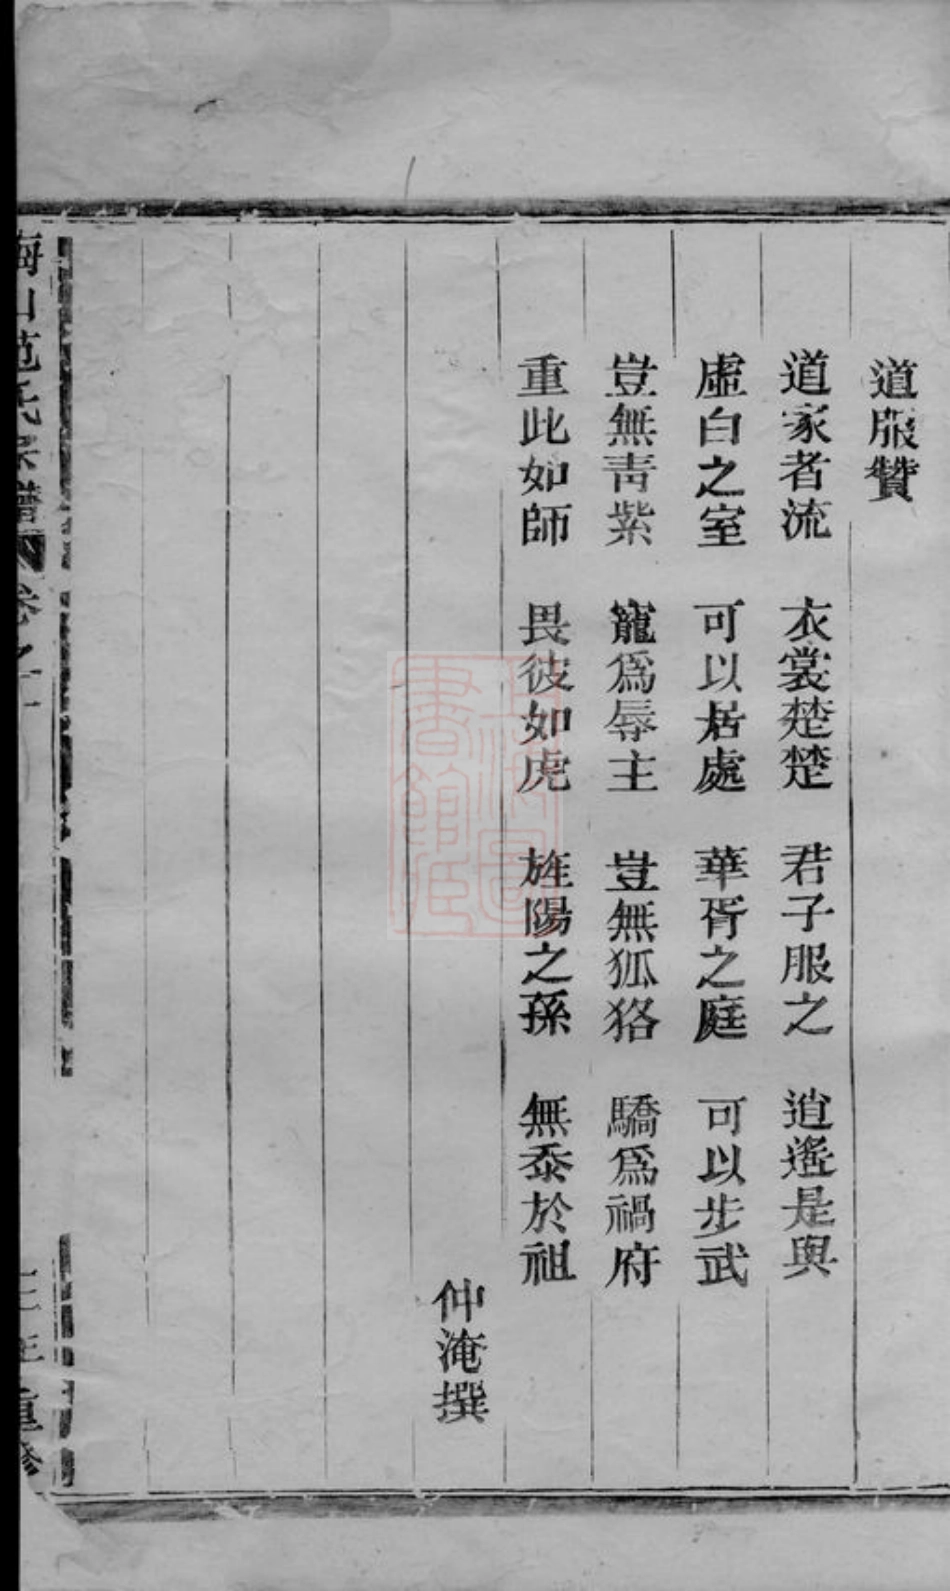 道服贊
道家者流 衣裳楚楚 君子服之 逍遙是與
虛白之室 可以居處 華胥之庭 可以步武
豈無青紫 寵爲辱主 豈無狐狢 驕爲禍府
重此如師 畏彼如虎 旌陽之孫 無忝於祖
仲淹撰
山范氏宗譜 卷之
重修